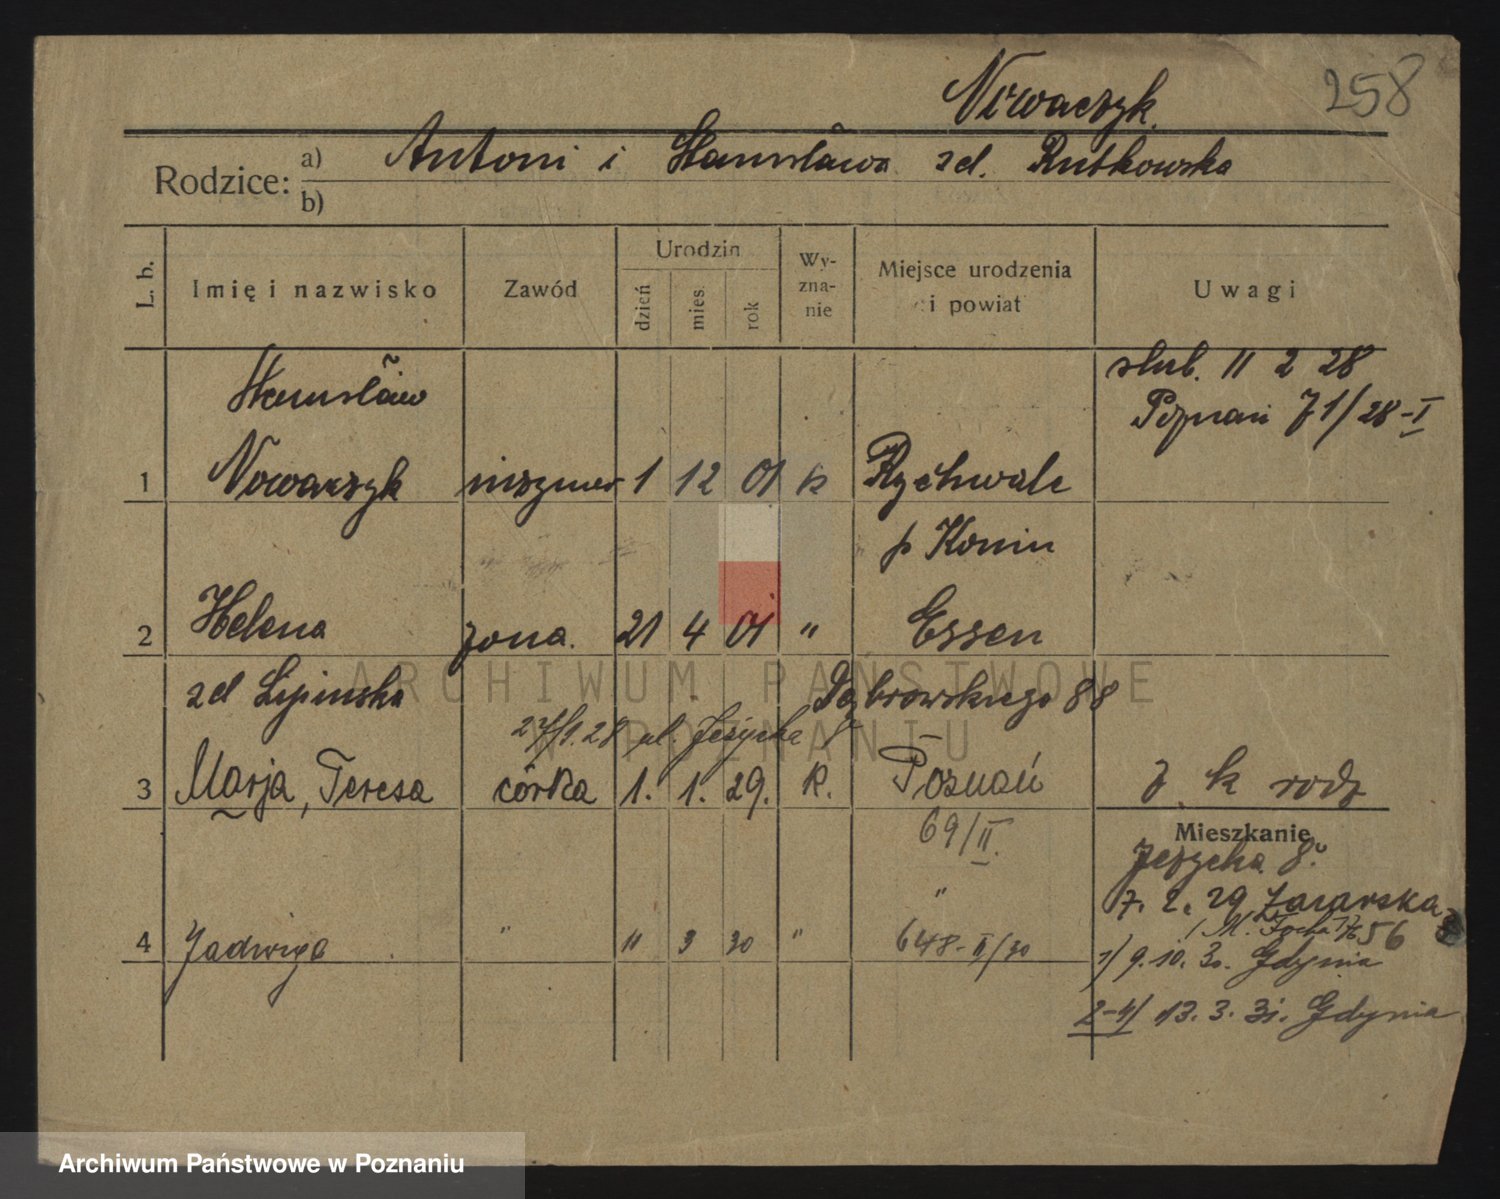 258
Nowaczyk
Rodzice: a) Antoni i Stanisława zd. Rutkowska
b)
L. b. Imię i nazwisko Zawód Urodzin dzień mies. rok Wy-zna-nie Miejsce urodzenia i powiat Uwagi
Stanisław ślub. 11 2 28
Poznań 71/28-I
1 Nowaczyk 1 12 01 k Rychwale
p Konin
2 Helena żona. 21 4 01 " Essen
zd Lipińska Dąbrowskiego 88
27/9.28 ul. Jeżycka 8
3 Marja, Teresa córka 1. 1. 29. k. Poznań
69/II.
Mieszkanie
Jeżycka 8.
" 7. 2. 29
M. Focha 56
4 Jadwiga " 11 3 30 " 648-II/30
1/ 9.10.30. Gdynia
2-4/ 13.3.31. Gdynia
ARCHIWUM PAŃSTWOWE
W POZNANIU
Archiwum Państwowe w Poznaniu